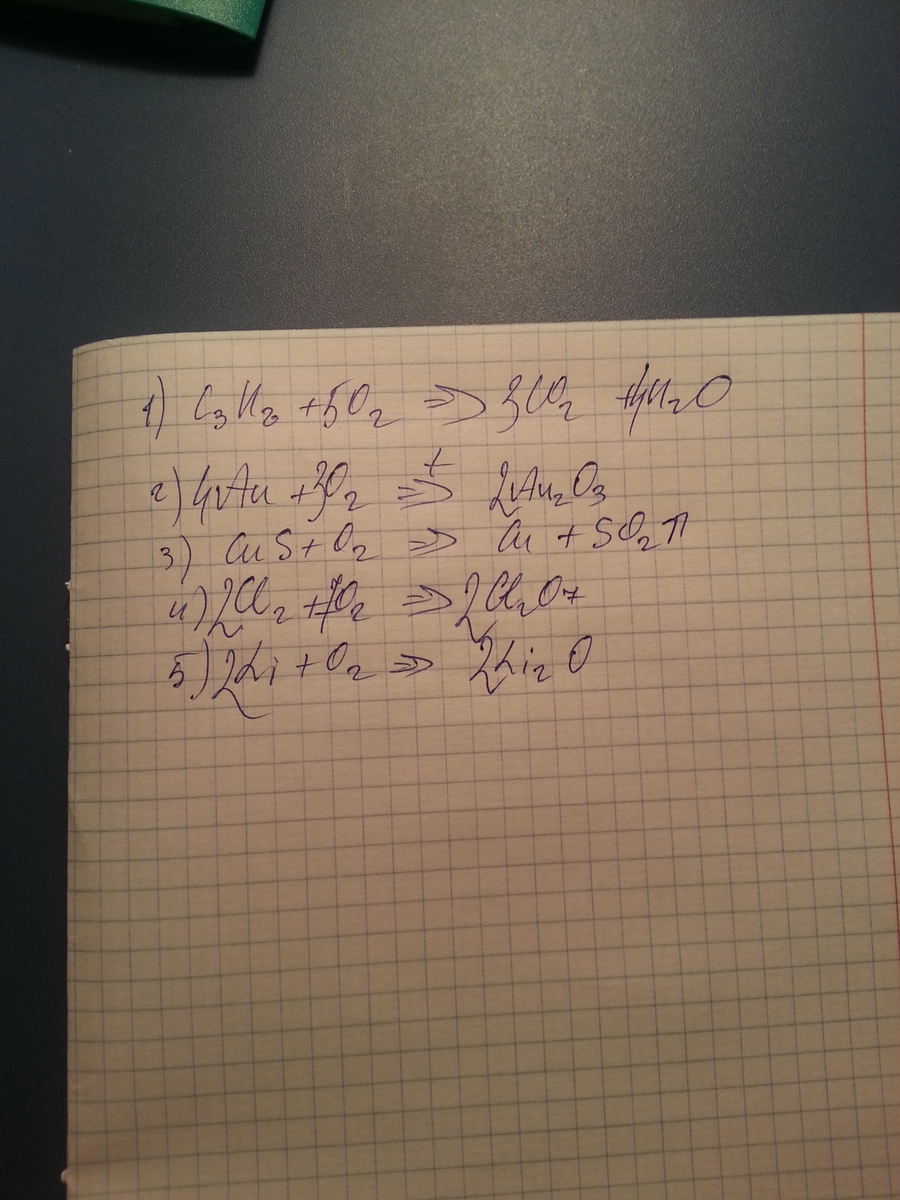 1) C₃H₈ + 5O₂ ⇒ 3CO₂ + 4H₂O
t
2) 4Au + 3O₂ ⇒ 2Au₂O₃
3) CuS + O₂ ⇒ Cu + SO₂
4) 2Cl₂ + 7O₂ ⇒ 2Cl₂O₇
5) 2Li + O₂ ⇒ 2Li₂O